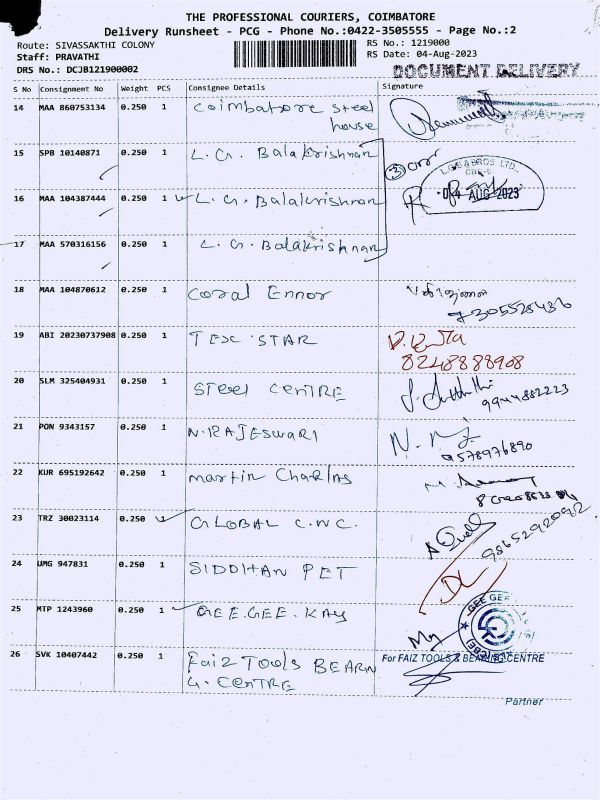 THE PROFESSIONAL COURIERS, COIMBATORE
Delivery Runsheet - PCG - Phone No.:0422-3505555 - Page No.:2
Route: SIVASSAKTHI COLONY RS No.: 1219000
Staff: PRAVATHI RS Date: 04-Aug-2023
DRS No.: DCJB121900002 DOCUMENT DELIVERY
S No Consignment No Weight PCS Consignee Details Signature
14 MAA 860753134 0.250 1 Coimbatore Steel
house
15 SPB 10140871 0.250 1 L. G. Balakrishnan
L.G.B & BROS LTD.,
16 MAA 104387444 0.250 1 L. G. Balakrishnan
04 AUG 2023
17 MAA 570316156 0.250 1 L. G. Balakrishnan
18 MAA 104870612 0.250 1 Coral Ennor
7305528436
19 ABI 20230737908 0.250 1 TEX STAR
8248888908
20 SLM 325404931 0.250 1 Steel CENTRE
9944882223
21 PON 9343157 0.250 1 N. RAJESWARI
9578976890
22 KUR 695192642 0.250 1 Martin Charlas
23 TRZ 30023114 0.250 1 GLOBAL C.N.C.
9865292092
24 UMG 947831 0.250 1 SIDDHAN PET
25 MTP 1243960 0.250 1 GEE.GEE.KAY
GEE GEE
26 SVK 10407442 0.250 1 Faiz Tools BEARN
G. CENTRE
For FAIZ TOOLS & BEARING CENTRE
Partner